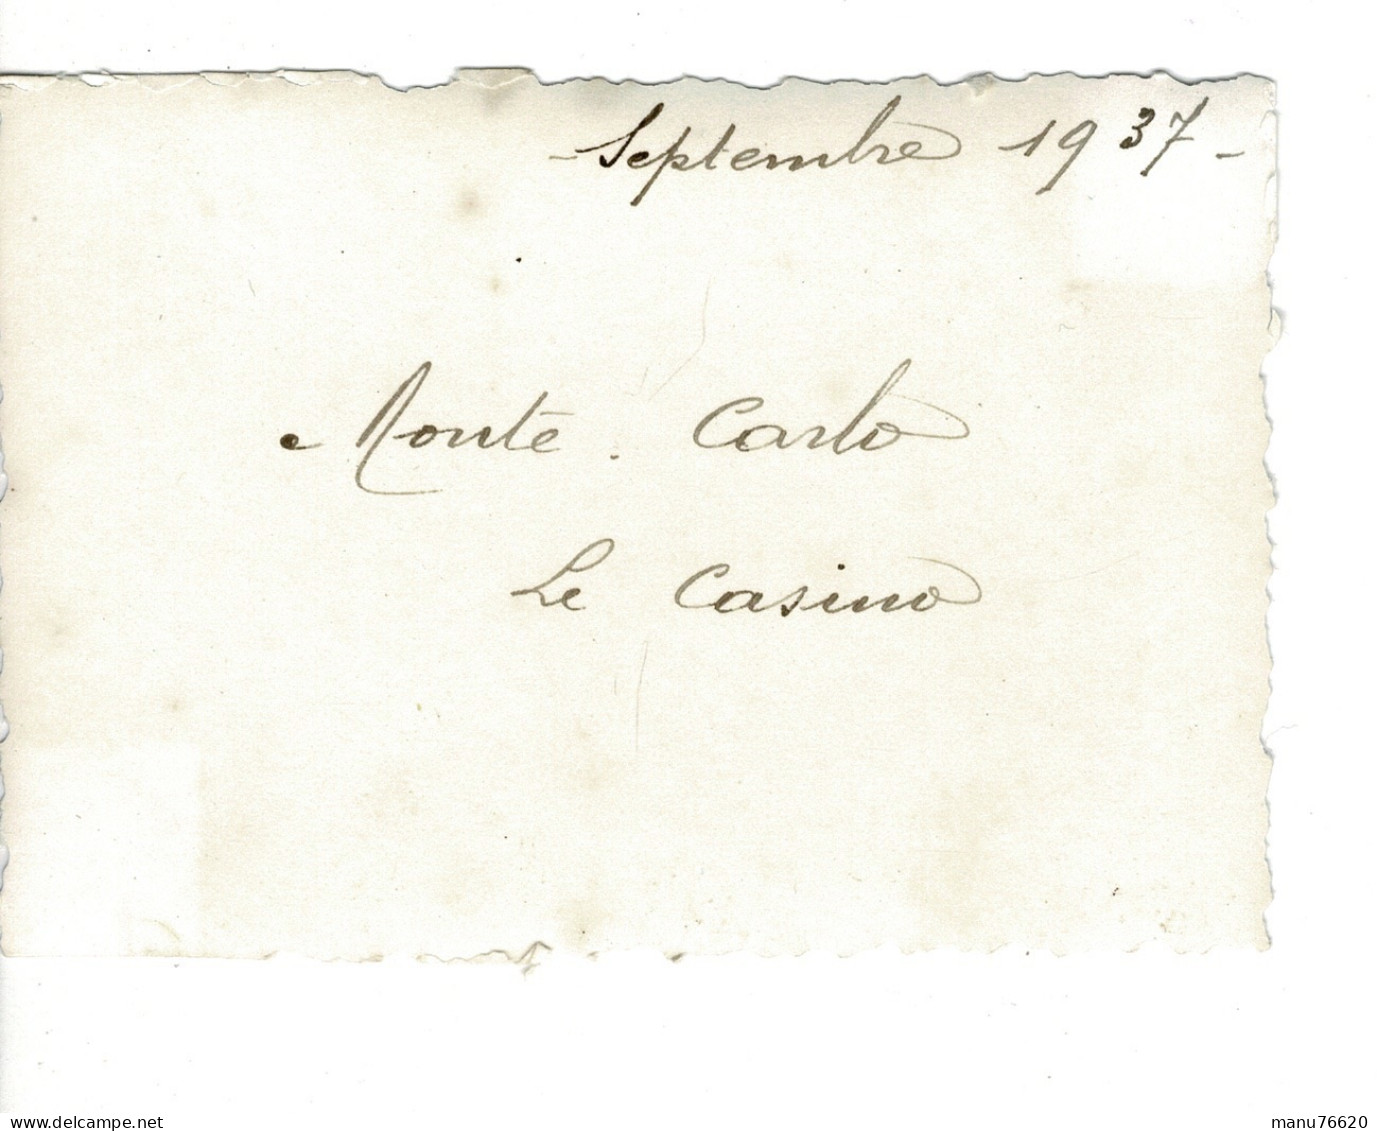 - Septembre 1937 -
Monte. Carlo
Le Casino
www.delcampe.net
manu76620